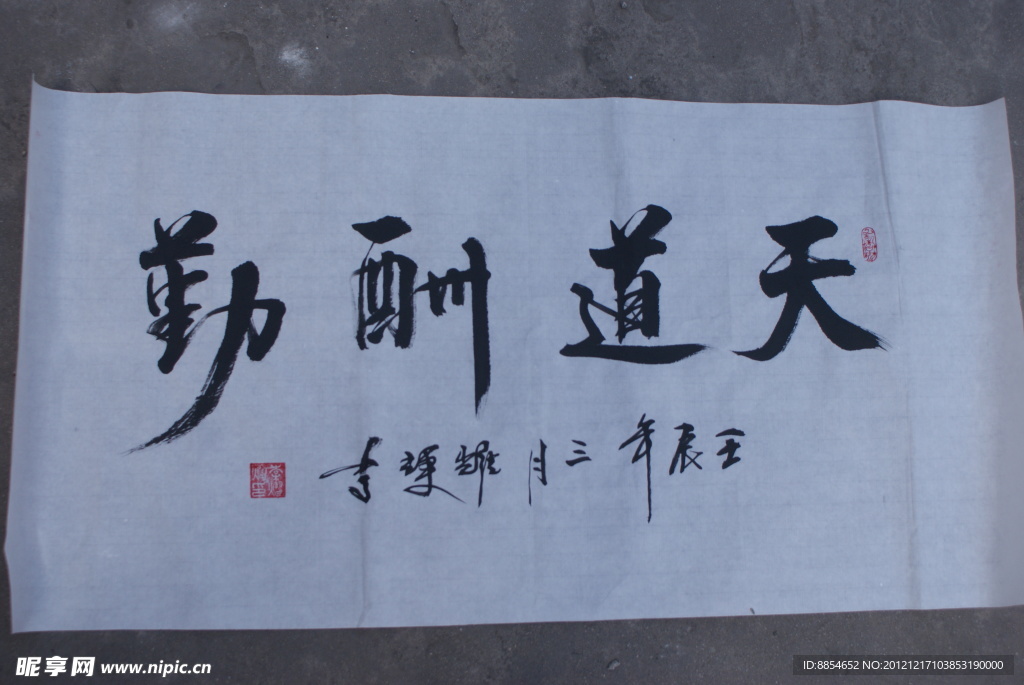 天道酬勤
壬辰年三月耀輝書
昵享网 www.nipic.cn
ID:8854652 NO:20121217103853190000